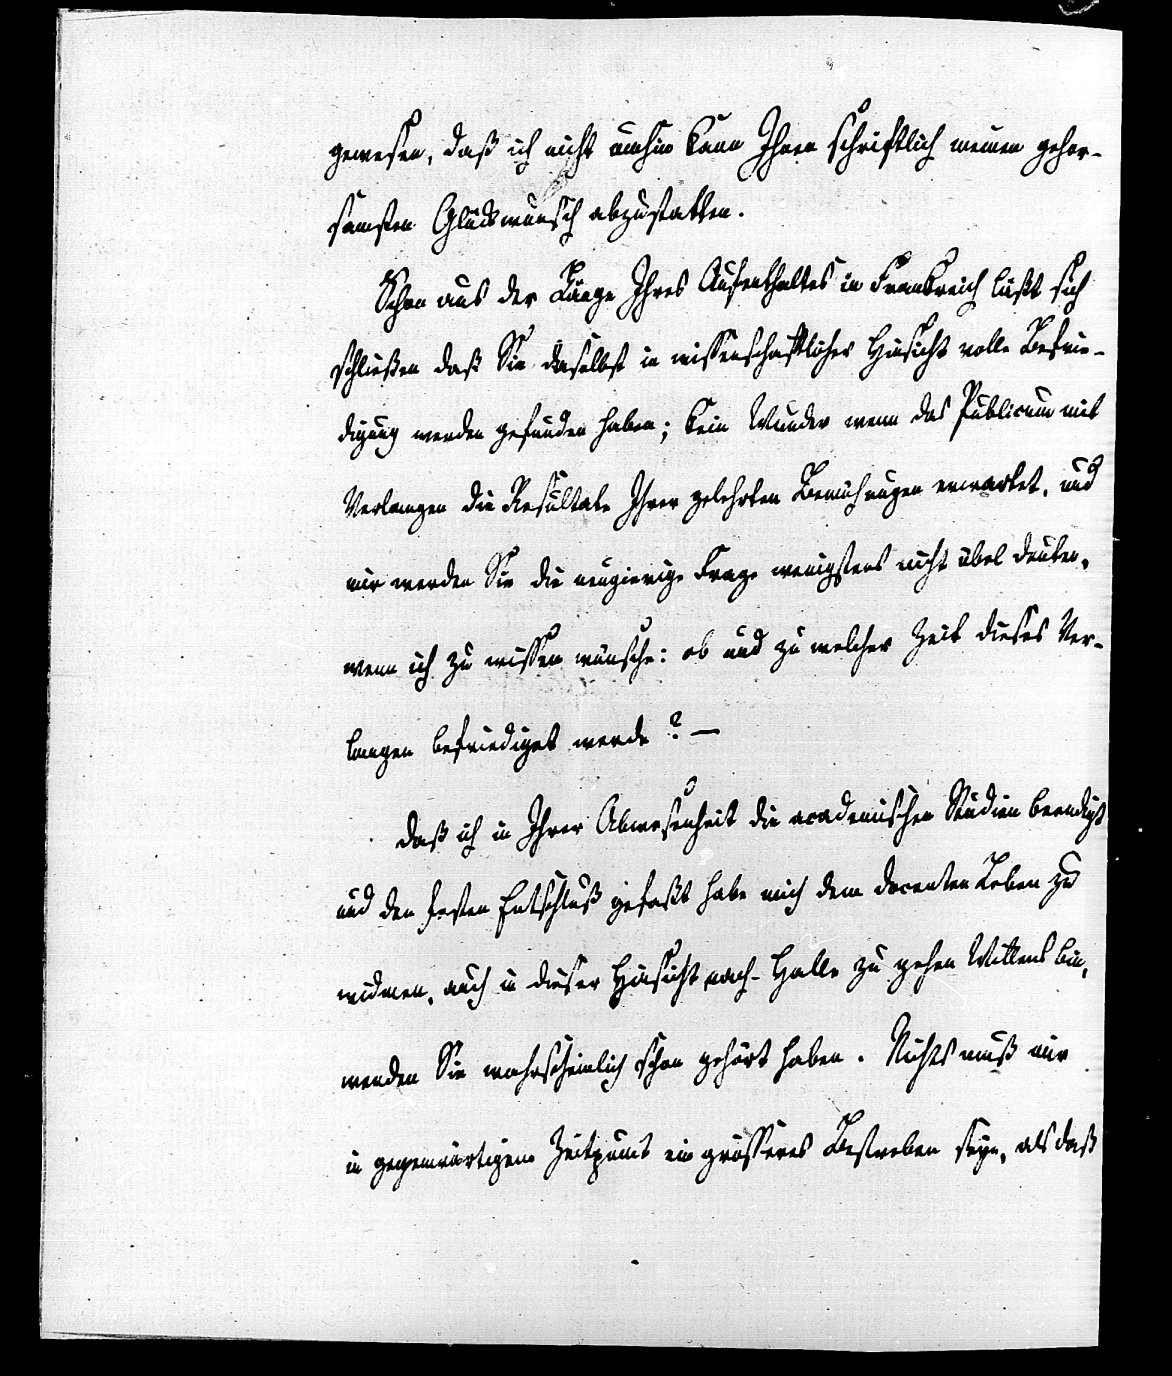 gewesen, daß ich nicht umhin kann Ihnen schriftlich meinen gehor-
samsten Glückwunsch abzustatten.
Schon aus der Länge Ihres Aufenthaltes in Frankreich läßt sich
schließen daß Sie daselbst in wissenschaftlicher Hinsicht volle Befrie-
digung werden gefunden haben; kein Wunder wenn das Publicum mit
Verlangen die Resultate Ihrer gelehrten Bemühungen erwartet, und
mir werden Sie die neugierige Frage wenigstens nicht übel deuten,
wenn ich zu wissen wünsche: ob und zu welcher Zeit dieses Ver-
langen befriediget werde? —
Daß ich in Ihrer Abwesenheit die academischen Studien beendigt
und den festen Entschluß gefaßt habe mich dem docenten Leben zu
widmen, auch in dieser Hinsicht nach Halle zu gehen Willens bin,
werden Sie wahrscheinlich schon gehört haben. Nichts muß mir
in gegenwärtigem Zeitpunct ein grösseres Bestreben seyn, als daß